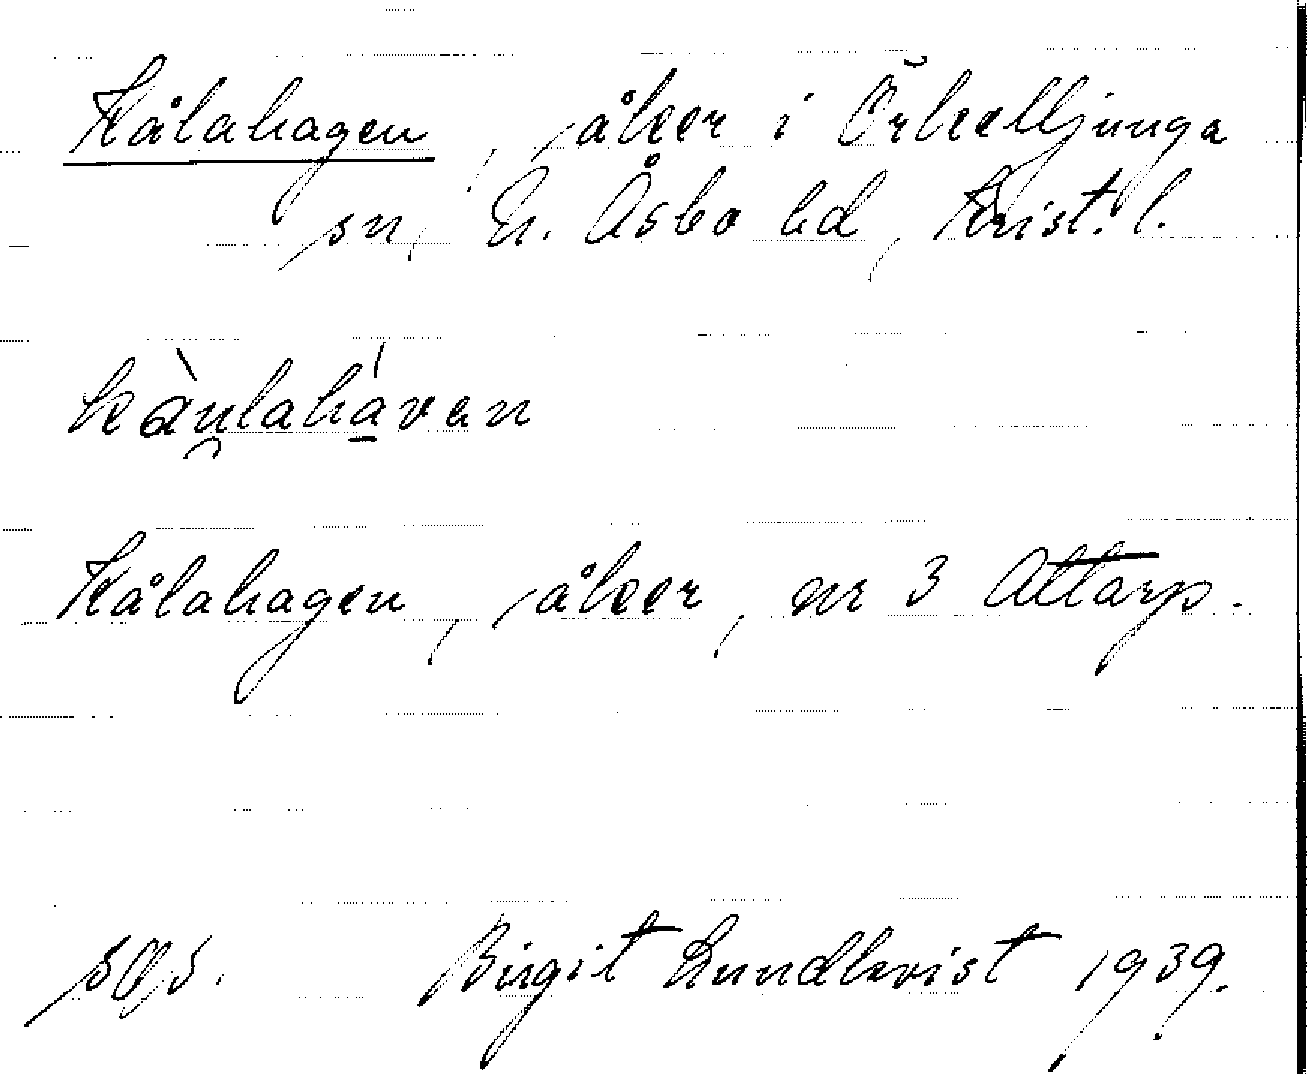 Kålahagen, åker i Örkelljunga
sn, N. Åsbo hd, Krist. l.
kàu̯lahá̱van
Kålahagen, åker, nr 3 Attarp.
Birgit Lundkvist 1939.